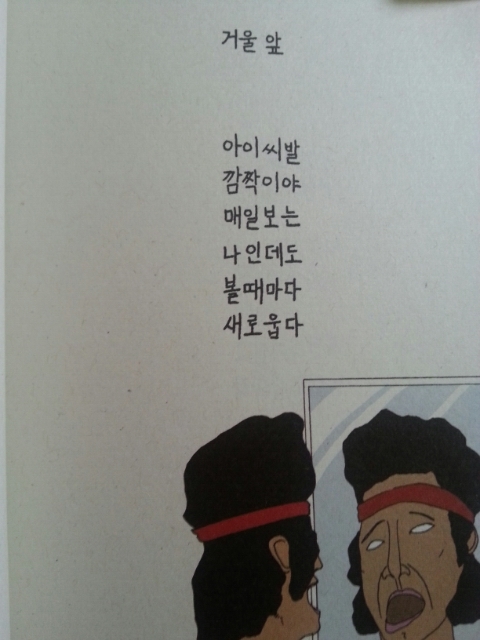 거울 앞
아이 씨발
깜짝이야
매일 보는
나인데도
볼때마다
새로웁다